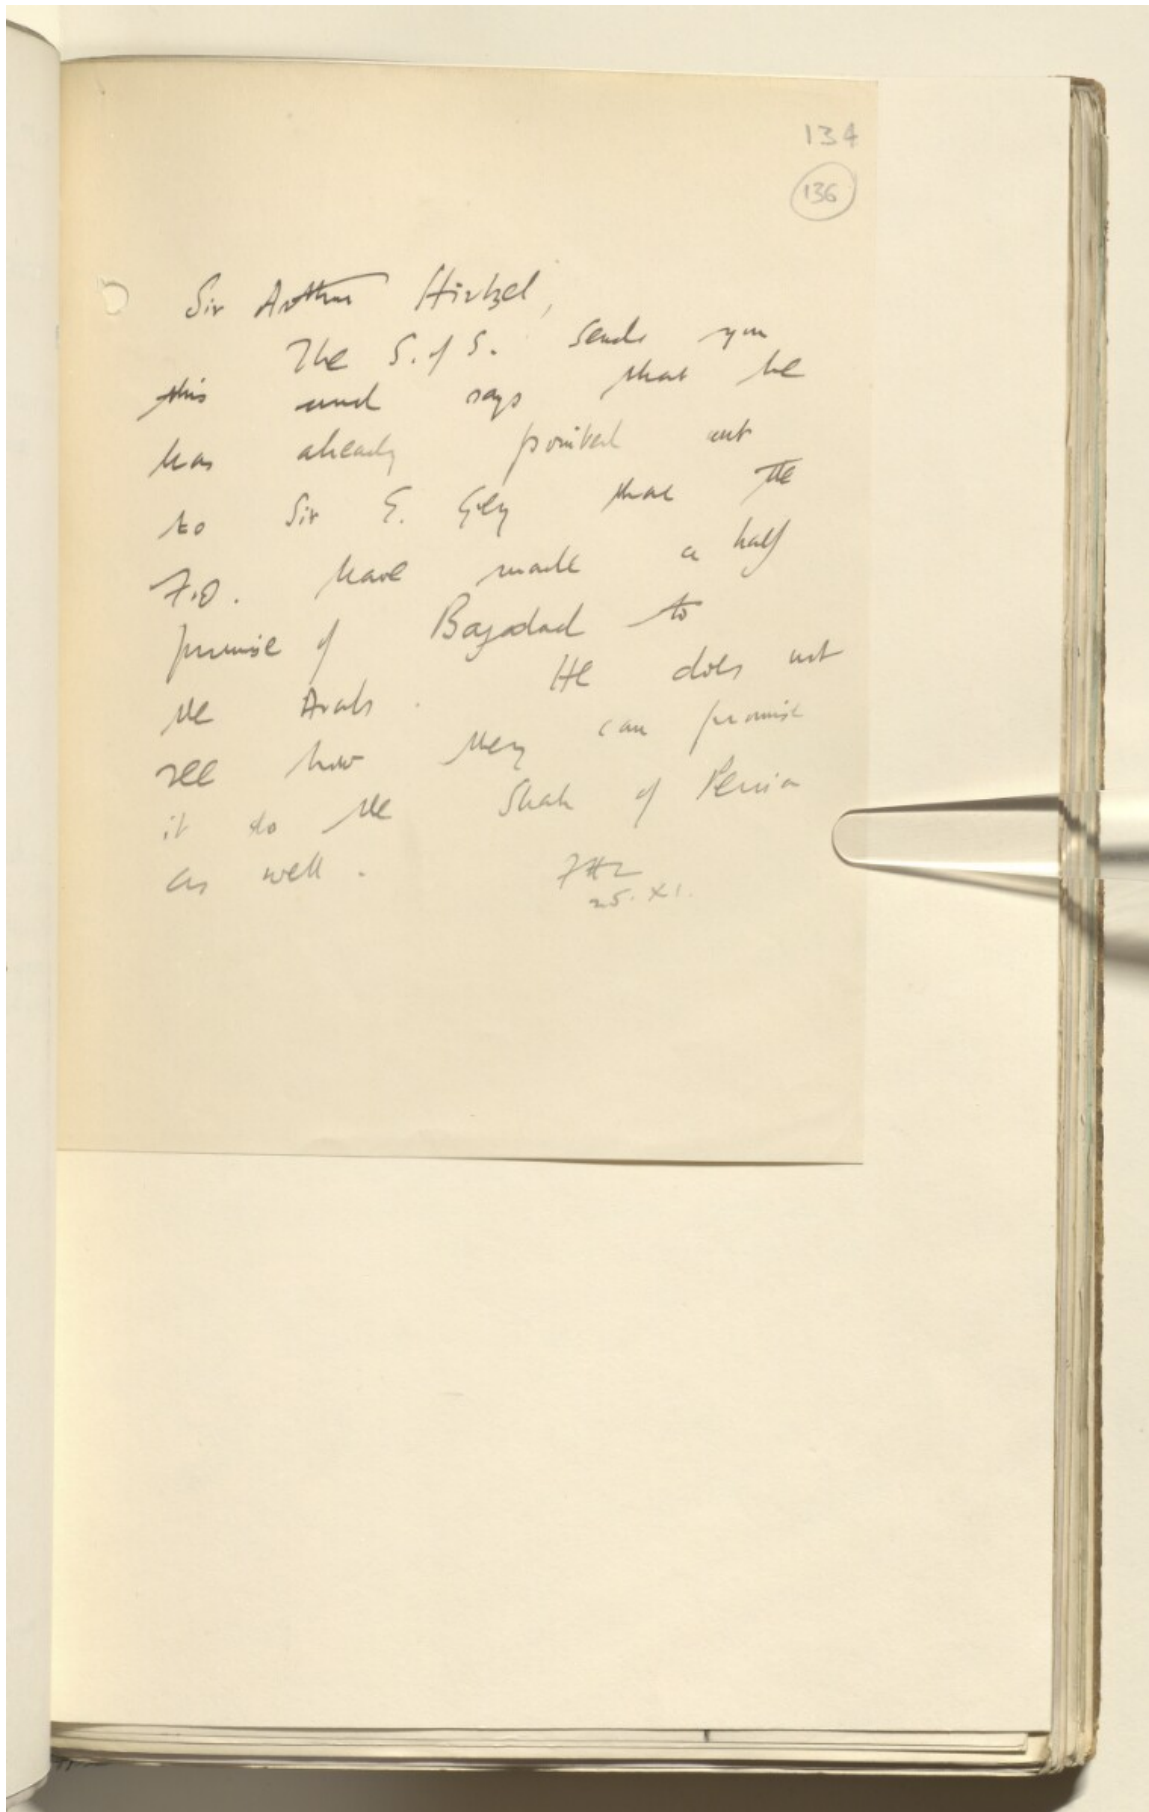 134
136
Sir Arthur Hirtzel,
The S. of S. sends you
this and says that he
has already pointed out
to Sir E. Grey that the
F.O. have made a half
promise of Bagdad to
the Arabs. He does not
see how they can promise
it to the Shah of Persia
as well.
25. XI.